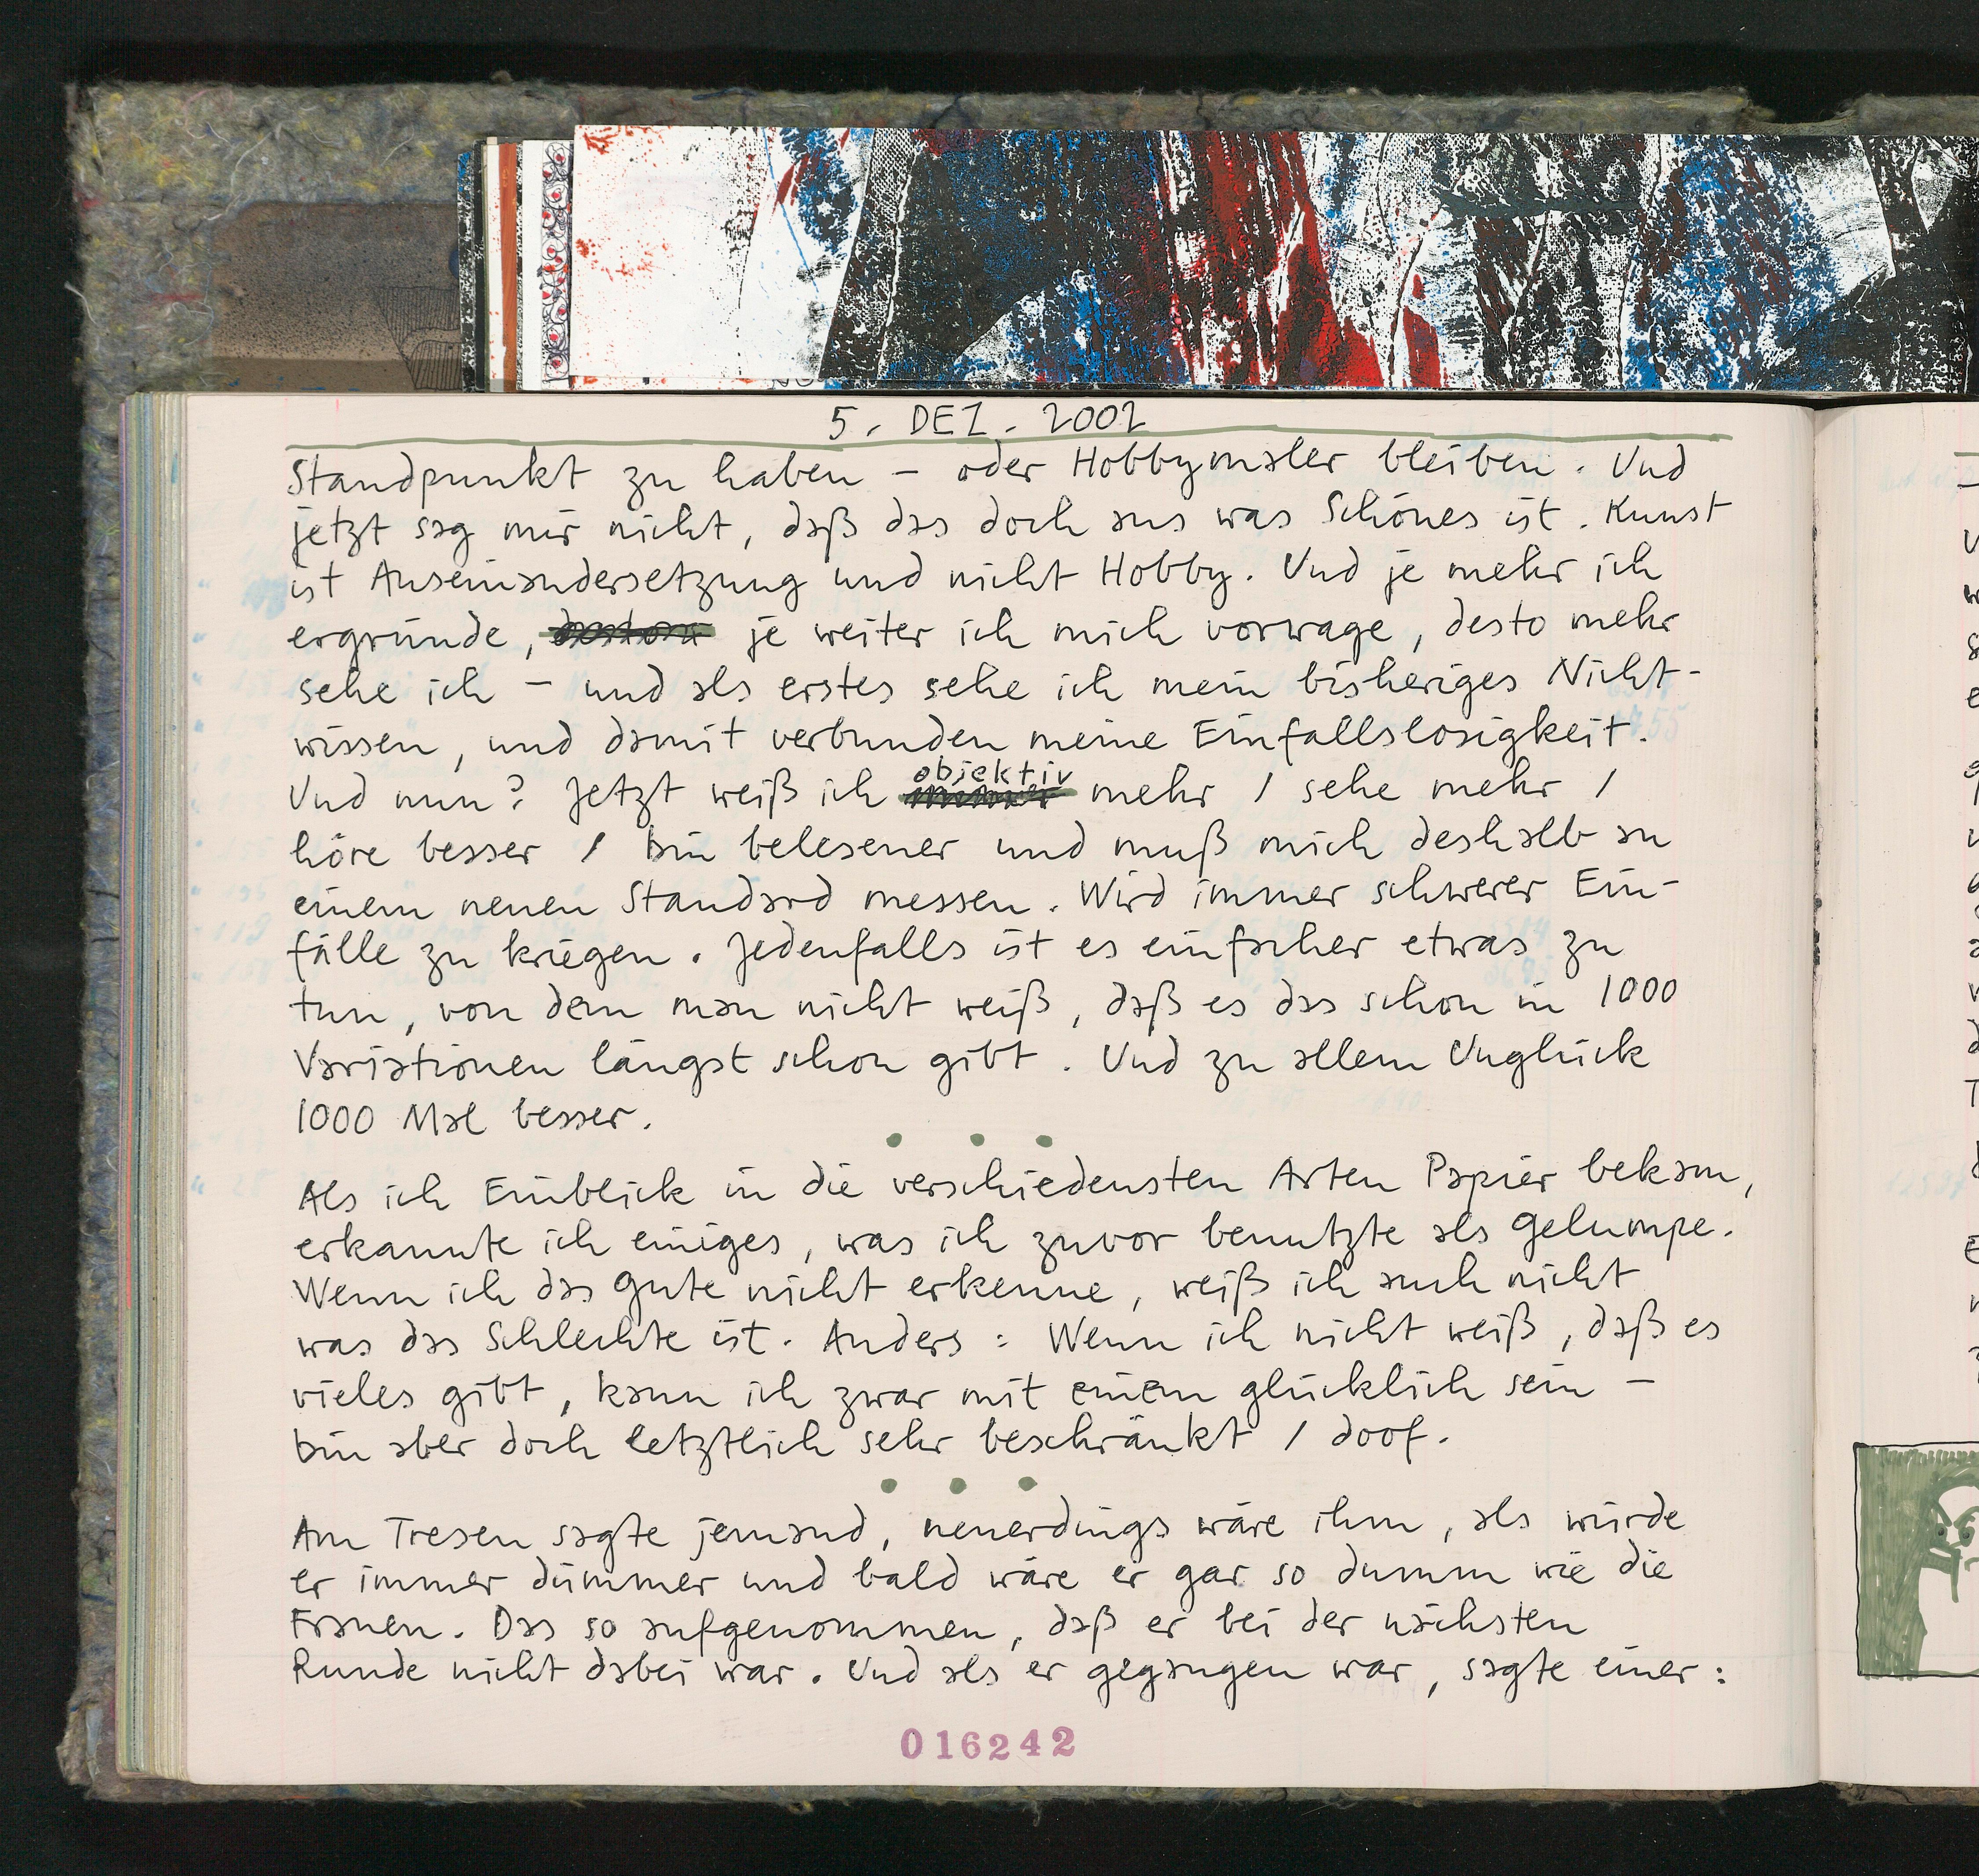 5. DEZ. 2002
Standpunkt zu haben – oder Hobbymaler bleiben. Und
jetzt sag mir nicht, daß das doch aus was Schönes ist. Kunst
ist Auseinandersetzung und nicht Hobby. Und je mehr ich
ergründe, je weiter ich mich vorwage, desto mehr
sehe ich – und als erstes sehe ich mein bisheriges Nicht-
wissen, und damit verbunden meine Einfallslosigkeit.
Und nun? Jetzt weiß ich objektiv mehr / sehe mehr /
höre besser / bin belesener und muß mich deshalb an
einem neuen Standard messen. Wird immer schwerer Ein-
fälle zu kriegen. Jedenfalls ist es einfacher etwas zu
tun, von dem man nicht weiß, daß es das schon in 1000
Variationen längst schon gibt. Und zu allem Unglück
1000 Mal besser.
• • •
Als ich Einblick in die verschiedensten Arten Papier bekam,
erkannte ich einiges, was ich zuvor benutzte als Gelumpe.
Wenn ich das Gute nicht erkenne, weiß ich auch nicht
was das Schlechte ist. Anders: Wenn ich nicht weiß, daß es
vieles gibt, kann ich zwar mit einem glücklich sein –
bin aber doch letztlich sehr beschränkt / doof.
• • •
Am Tresen sagte jemand, neuerdings wäre ihm, als würde
er immer dümmer und bald wäre er gar so dumm wie die
Frauen. Das so aufgenommen, daß er bei der nächsten
Runde nicht dabei war. Und als er gegangen war, sagte einer:
016242